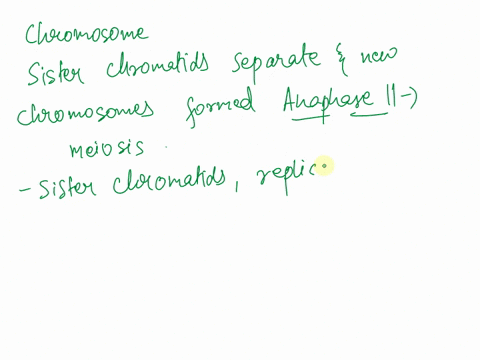 Chromosome
Sister chromatids separate & new
chromosomes formed Anaphase II -)
meiosis
- Sister chromatids, replic